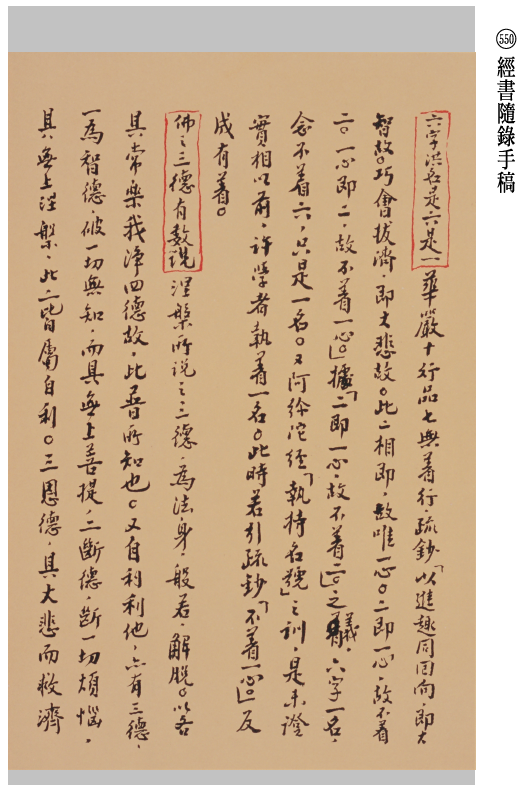 550 經書隨錄手稿
六字洪名是六是一 華嚴十行品七無著行，疏鈔「以進趣同回向，即大
智故。巧會拔濟，即大悲故。此二相即，故唯一心。二即一心，故不着
二。一心即二，故不着一心。」據「二即一心，故不着二。」之議，六字一名，
念不着六，只是一名。又阿弥陀經「執持名號」之訓，是未證
實相以前，許學者執着一名。此時若引疏鈔「不着一心。」反
成有着。
佛之三德有数說 涅槃所說之三德，為法身，般若，解脱。以各
具常樂我淨四德故，此普所知也。又自利利他，亦有三德，
一為智德，破一切無知，而具無上菩提，二斷德，斷一切煩惱，
具無上涅槃，此二皆屬自利。三恩德，具大悲而救濟